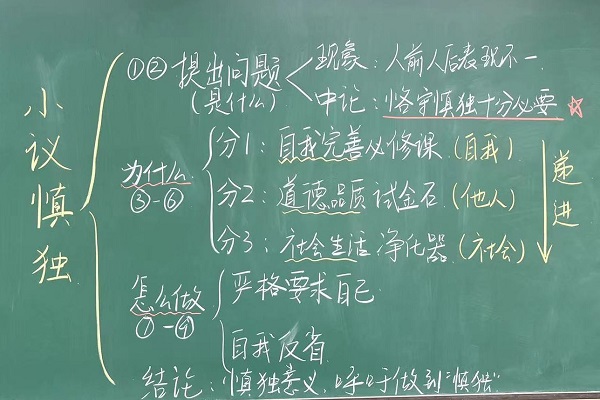 小议慎独
①② 提出问题
(是什么)
现象：人前人后表现不一
中论：恪守慎独十分必要 ☆
为什么
③-⑥
分1：自我完善必修课 (自我)
分2：道德品质试金石 (他人)
分3：社会生活净化器 (社会)
递进
怎么做
⑦-⑨
严格要求自己
自我反省
结论：慎独意义，呼吁做到“慎独”